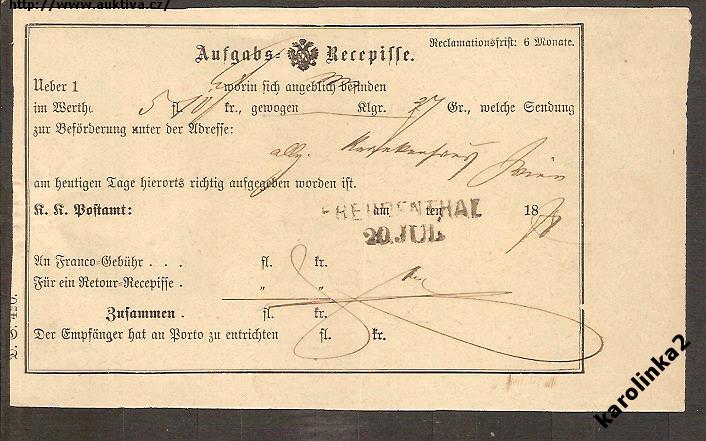 http://www.auktiva.cz/
Aufgabs- Recepisse.
Reclamationsfrist: 6 Monate.
Ueber 1 worin sich angeblich befinden
im Werthe 5 fl. 10 kr., gewogen Klgr. 27 Gr., welche Sendung
zur Beförderung unter der Adresse:
allg. Krankenhaus Wien
am heutigen Tage hierorts richtig aufgegeben worden ist.
K. K. Postamt: FREUDENTHAL am ten 18
20. JUL.
An Franco-Gebühr . . . fl. kr.
Für ein Retour-Recepisse . " "
Zusammen . fl. kr.
Der Empfänger hat an Porto zu entrichten fl. kr.
karolinka2